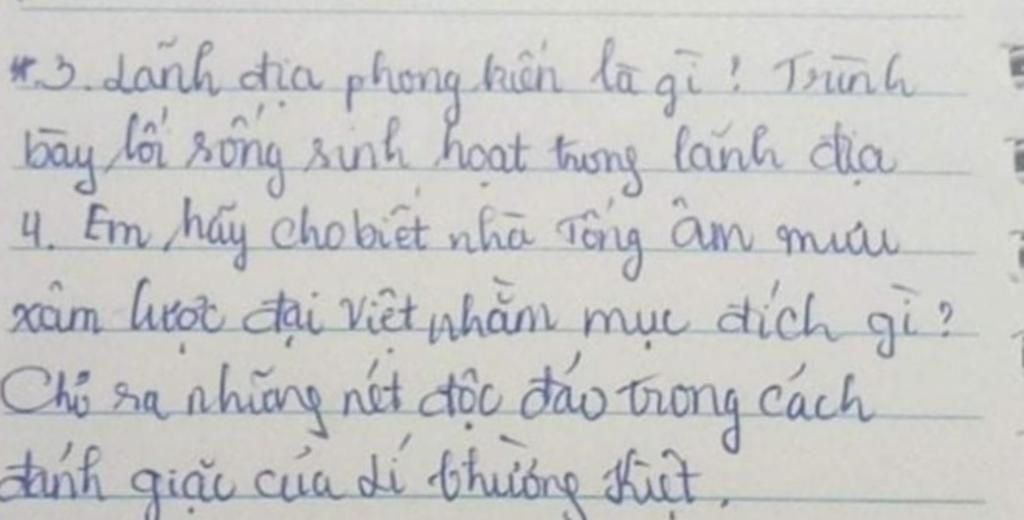 *3. Lãnh địa phong kiến là gì? Trình
bày lối sống sinh hoạt trong lãnh địa
4. Em hãy cho biết nhà Tống âm mưu
xâm lược đại việt nhằm mục đích gì?
Chỉ ra những nét độc đáo trong cách
đánh giặc của Lí Thường Kiệt.